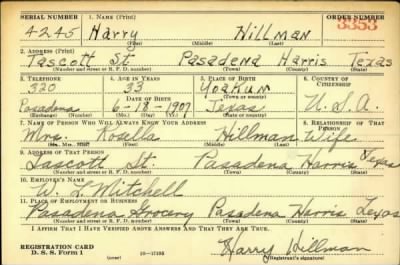 SERIAL NUMBER 1. NAME (Print) ORDER NUMBER
4245 Harry Hillman 3353
(First) (Middle) (Last)
2. ADDRESS (Print)
Tascott St Pasadena Harris Texas
(Number and street or R. F. D. number) (Town) (County) (State)
3. TELEPHONE 4. AGE IN YEARS 5. PLACE OF BIRTH 6. COUNTRY OF CITIZENSHIP
320 33 Yoakum
DATE OF BIRTH (Town or county)
Pasadena 6-18-1907 Texas U.S.A.
(Exchange) (Number) (Mo.) (Day) (Yr.) (State or country)
7. NAME OF PERSON WHO WILL ALWAYS KNOW YOUR ADDRESS 8. RELATIONSHIP OF THAT PERSON
Mrs. Rosella Hillman Wife
(Mr., Mrs., Miss) (First) (Middle) (Last)
9. ADDRESS OF THAT PERSON
Tascott St. Pasadena Harris Texas
(Number and street or R. F. D. number) (Town) (County) (State)
10. EMPLOYER'S NAME
W. L. Mitchell
11. PLACE OF EMPLOYMENT OR BUSINESS
Pasadena Grocery Pasadena Harris Texas
(Number and street or R. F. D. number) (Town) (County) (State)
I AFFIRM THAT I HAVE VERIFIED ABOVE ANSWERS AND THAT THEY ARE TRUE.
REGISTRATION CARD
D. S. S. Form 1 (over) Harry Hillman
(Registrant's signature)